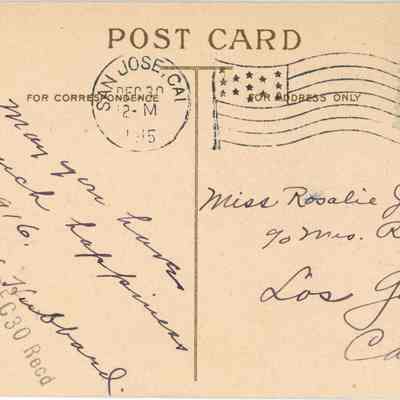 POST CARD
SAN JOSE, CAL
DEC 30
2-M
1915
FOR CORRESPONDENCE
FOR ADDRESS ONLY
May you have
much happiness
1916.
Hubbard.
DEC 30 Recd
Miss Rosalie
c/o Mrs. R
Los
Ca